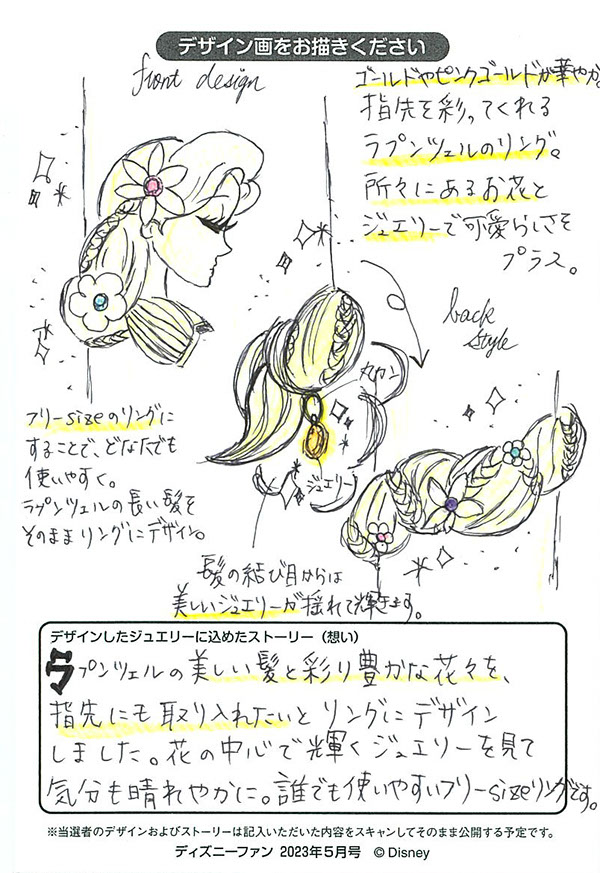 デザイン画をお描きください
front design
ゴールドやピンクゴールドが華やか
指先を彩ってくれる
ラプンツェルのリング。
所々にあるお花と
ジュエリーで可愛らしさを
プラス。
back
style
丸カン
ジュエリー
フリーsizeのリングに
することで、どなたでも
使いやすく。
ラプンツェルの長い髪を
そのままリングにデザイン。
髪の結び目からは
美しいジュエリーが揺れて輝きます。
デザインしたジュエリーに込めたストーリー（想い）
ラプンツェルの美しい髪と彩り豊かな花々を、
指先にも取り入れたいとリングにデザイン
しました。花の中心で輝くジュエリーを見て
気分も晴れやかに。誰でも使いやすいフリーsizeリングです。
※当選者のデザインおよびストーリーは記入いただいた内容をスキャンしてそのまま公開する予定です。
ディズニーファン 2023年5月号 ©Disney